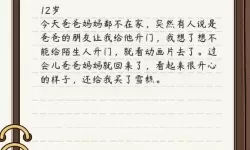 12岁
今天爸爸妈妈都不在家，突然有人说是
爸爸的朋友让我给他开门，我想了想不
能给陌生人开门，就看动画片去了。过
会儿爸爸妈妈就回来了，看起来很开心
的样子，还给我买了雪糕。